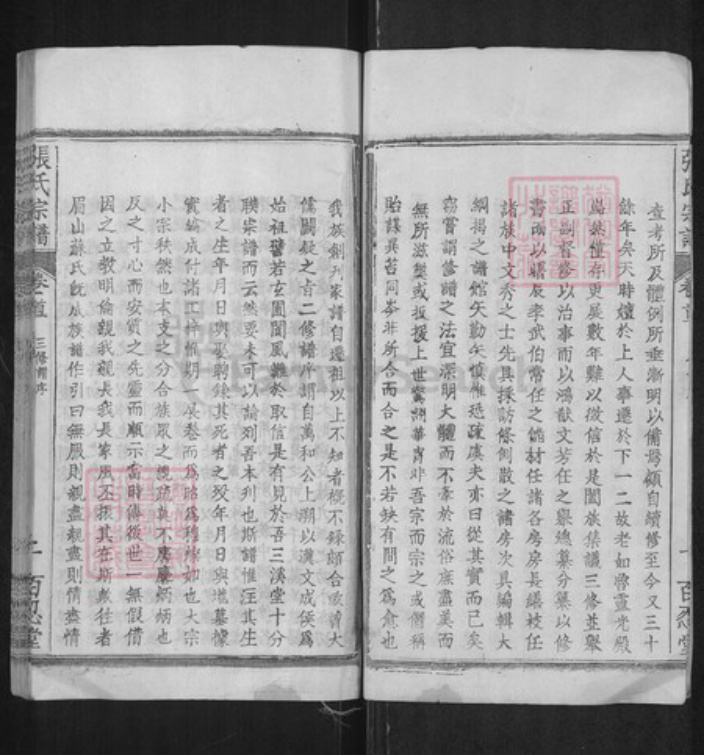 查考所及體例所垂漸明以備焉顧自續修至今又三十
餘年矣天時嬗於上人事遷於下一二故老如魯靈光殿
巋然僅存更展數年難以徵信於是闔族集議三修並舉
正副督修以治事而以鴻猷文芳任之舉總纂分纂以修
書而以驤辰李武伯常任之餘材任諸各房房長繕校任
諸族中文秀之士先具採訪條例散之諸房次具編輯大
綱揭之譜館矢勤矢慎惟恐疎虞夫亦曰從其實而已矣
竊嘗謂修譜之法宜深明大體而不牽於流俗底盡美而
無所滋弊或扳援上世驚詡華冑非吾宗而宗之或僭稱
貽謀異苔同岑非所合而合之是不若缺有間之為愈也
張氏宗譜 卷首 百忍堂
我族創刊家譜自遷祖以上不知者概不錄頗合歐大
儒闕疑之旨二修譜序謂自萬和公上溯以漢文成侯為
始祖譬若玄圃閬風難於取信是有見於吾三溪堂十分
聯宗譜而云然要未可以論列吾本刊也斯譜惟注其生
者之生年月日與娶聘錄其死者之歿年月日與塋墓據
實編成付諸工梓惟期一展卷而為昭為穆燦如也大宗
小宗秩然也本支之分合族眾之親疏無不慶慶炳炳也
反之寸心而安質之先靈而順示當時傳後世一無假借
因之立教明倫親我親長我長家風丕振其在斯歟往者
眉山蘇氏既成族譜作引曰無服則親盡親盡則情盡情
張氏宗譜 卷首 三修譜序 二 百忍堂